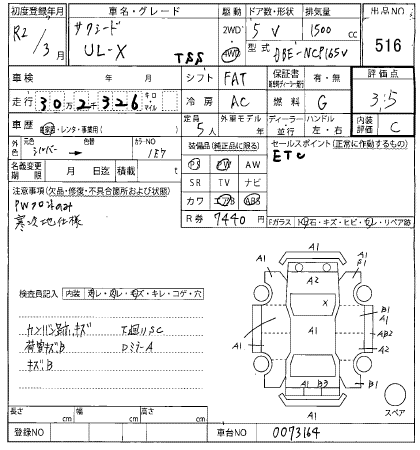 初度登録年月 車名・グレード 駆動 ドア数・形状 排気量 出品NO
R2/3月 サクシード UL-X TSS 2WD 4WD 5 V 1500 cc 516
型式 DBE-NCP165V
車検 年 月 シフト FAT 保証書 有・無 評価点
走行 30万2千326 キロ・マイル 冷房 AC 燃料 G 3.5
車歴 自家用・レンタ・事業用( ) 定員 5人 外車モデル 年 ディーラー・並行 ハンドル 左・右 内装評価 C
外色 元色 シルバー 色替 カラーNO 1E7
装備品(純正品に限る) セールスポイント(正常に作動するもの)
PS PW AW ETC
名義変更期限 月 日迄 積載 t SR TV ナビ
注意事項(欠品・修復・不具合箇所および状態) カワ エアB ABS
PWフロントのみ R券 7440円 Fガラス トビ石・キズ・ヒビ・ワレ・リペア跡
寒冷地仕様
A1
A1 A2 A1
検査員記入 内装 ヨゴレ・スレ・キズ・キレ・コゲ・穴
X B1
A1 A1 A1
カンバン跡、キズ 下廻りSC
荷室キズB Dミラ-A A2
キズ,B B1
A1 A1
A1 B3
A1 スペア
長さ cm 幅 cm 高さ cm
登録NO 車台NO 0073164